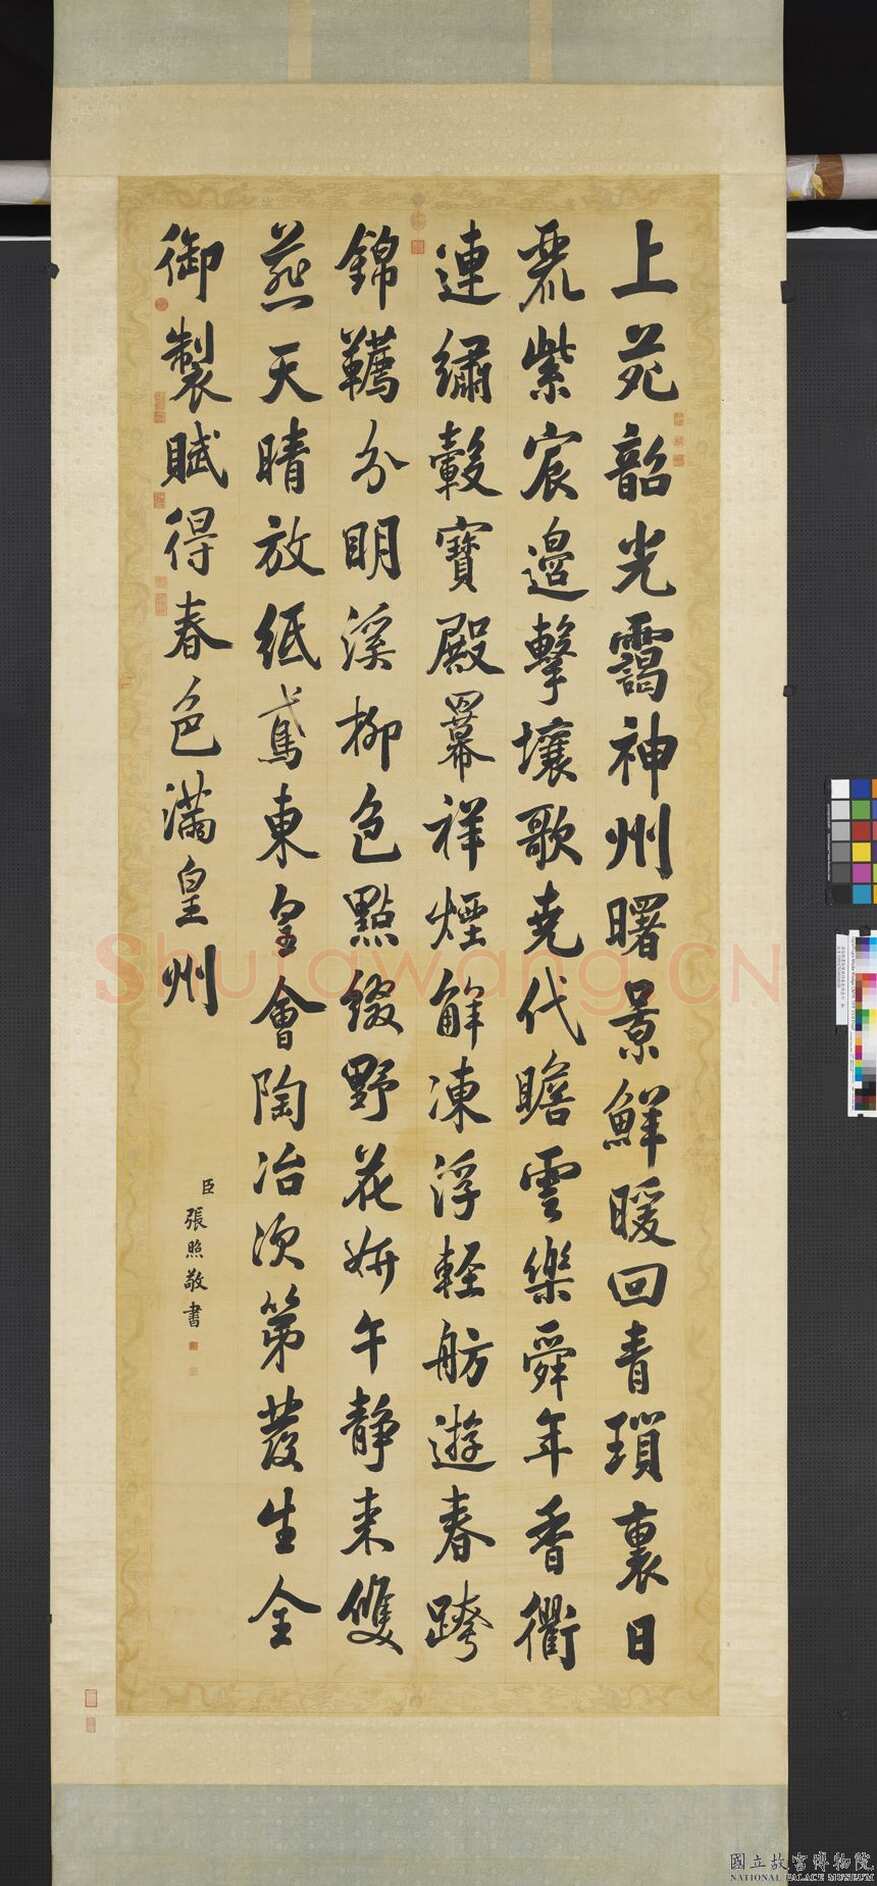 上苑韶光靄神州曙景鮮暖回青瑣裏日
麗紫宸邊擊壤歌堯代瞻雲樂舜年香衢
連繡轂寶殿羃祥煙解凍浮輕舫遊春跨
錦韉分明溪柳色點綴野花妍午靜來雙
燕天晴放紙鳶東皇會陶冶次第發生全
御製賦得春色滿皇州
臣張照敬書
Shufawang.CN
國立故宮博物院
NATIONAL PALACE MUSEUM